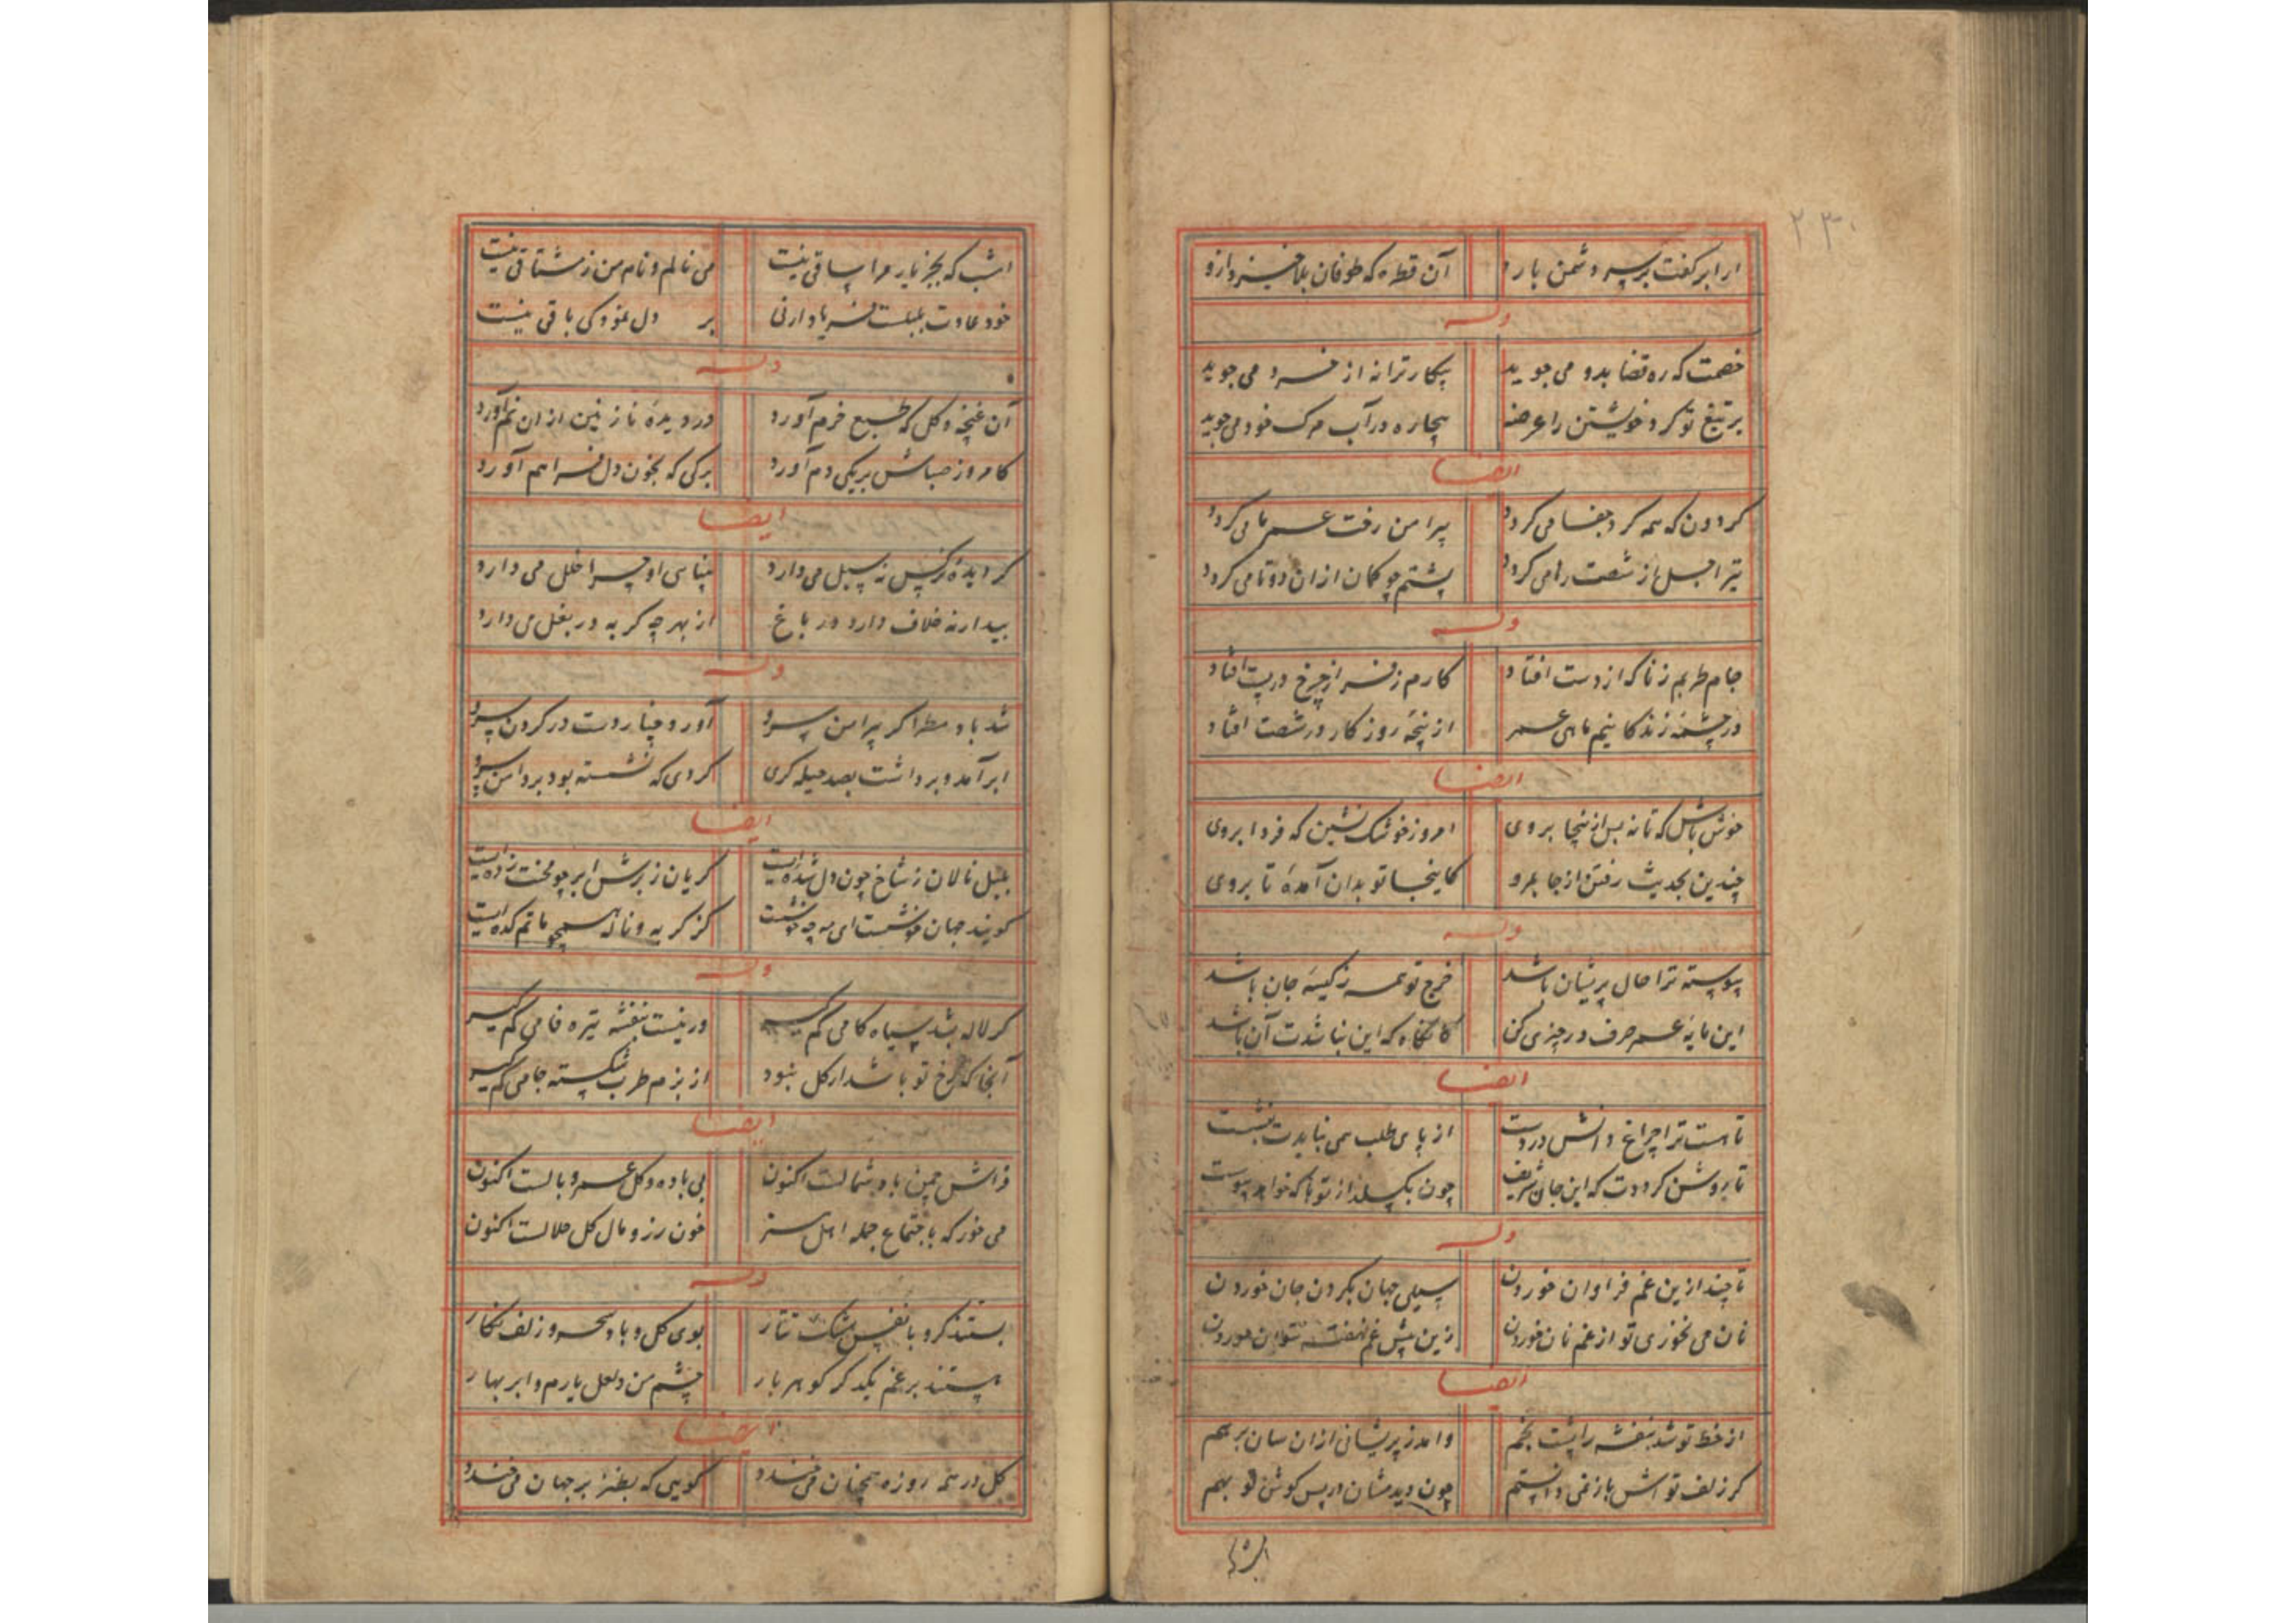 ۲۳۰
از ابر کفت برسر دشمن بارد آن قطره که طوفان بلا خیزد ازو
وله
خصمت که ره قضا بدو می جوید پیکار ترا نه از خرد می جوید
بر تیغ تو کرد خویشتن را عرضه بیچاره در آب مرک خود می جوید
ایضا
کردون که همه کرد جفا می کردد پیرامن رفت عمر ما می کردد
تیر اجل از شصت رها می کردد پشتم چو کمان ازان دوتا می کردد
وله
جام طربم زناکه از دست افتاد کارم ز فراز چرخ در پست افتاد
در چشمه زندکانیم ماهی عمر از پنجه روزکار در شصت افتاد
ایضا
خوش باش که تا نه بس ازینجا بروی امروز خوشک نشین که فردا بروی
چندین بحدیث رفتن از جا مرو کاینجا تو بدان آمدهٔ تا بروی
وله
پیوسته ترا حال پریشان باشد خرج تو همه ز کیسه جان باشد
این مایه عمر صرف در چیزی کن کانکاه که این نباشدت آن باشد
ایضا
تا هست ترا چراغ دانش در دست از پای طلب همی نبایدت نشست
تا روشن کرددت که این جان شریف چون بکسلد از تو با که خواهد پیوست
وله
تا چند ازین غم فراوان خوردن سیلی جهان بکردن جان خوردن
نان می نخوری تو از غم نان خوردن زین بیش غم نهفته نتوان خوردن
ایضا
از خط تو شد بنفشه را پشت بخم وامد ز پریشانی ازان سان برهم
کر زلف تواش باز نمی دانستم چون دیدمشان در پس کوش تو بهم
امشب که بجز نای مرا ساقی نیست می نالم و نام من ز مشتاقی نیست
خود عادت بلبلست فریاد ارنی بر دل نمودکی باقی نیست
وله
آن غنچه و کل که طبع خرم آورد در دیدهٔ نازنین ازان نم آورد
کامروز صباش بریکی دم آورد برکی که بخون دل فراهم آورد
ایضا
کر دیدهٔ نرکس نه سبل می دارد بیناسی او چرا خلل می دارد
بید ارنه خلاف دارد در باغ از بهر چه کربه در بغل می دارد
وله
شد باد مطرا کر پیرامن سرو آورد چنار دست در کردن سرو
ابر آمد و برداشت بصد حیله کری کردی که نشسته بود بر دامن سرو
ایضا
بلبل نالان ز شاخ چون دل شده ایست کریان ز برش ابر چو محنت زده ایست
کویند جهان خوشست ای مه چه خوشست کز کریه و ناله همچو ماتم کده ایست
وله
کر لاله بشد سیاه کامی کم کیر ور نیست بنفشه تیره فامی کم کیر
آنجا که رخ تو باشد ار کل نبود از بزم طرب شکسته جامی کم کیر
ایضا
فراش چمن باد شمالست اکنون بی باده و کل عمر وبالست اکنون
می خور که باجتماع جمله اهل سنز خون رز و مال کل حلالست اکنون
وله
بستند کرو با نفس مشک تتار بوی کل و باد سحر و زلف نکار
هستند برغم یکدکر کوهر بار چشم من و لعل یارم و ابر بهار
ایضا
کل در همه روزه همچنان می خندد کویی که بطنز بر جهان می خندد